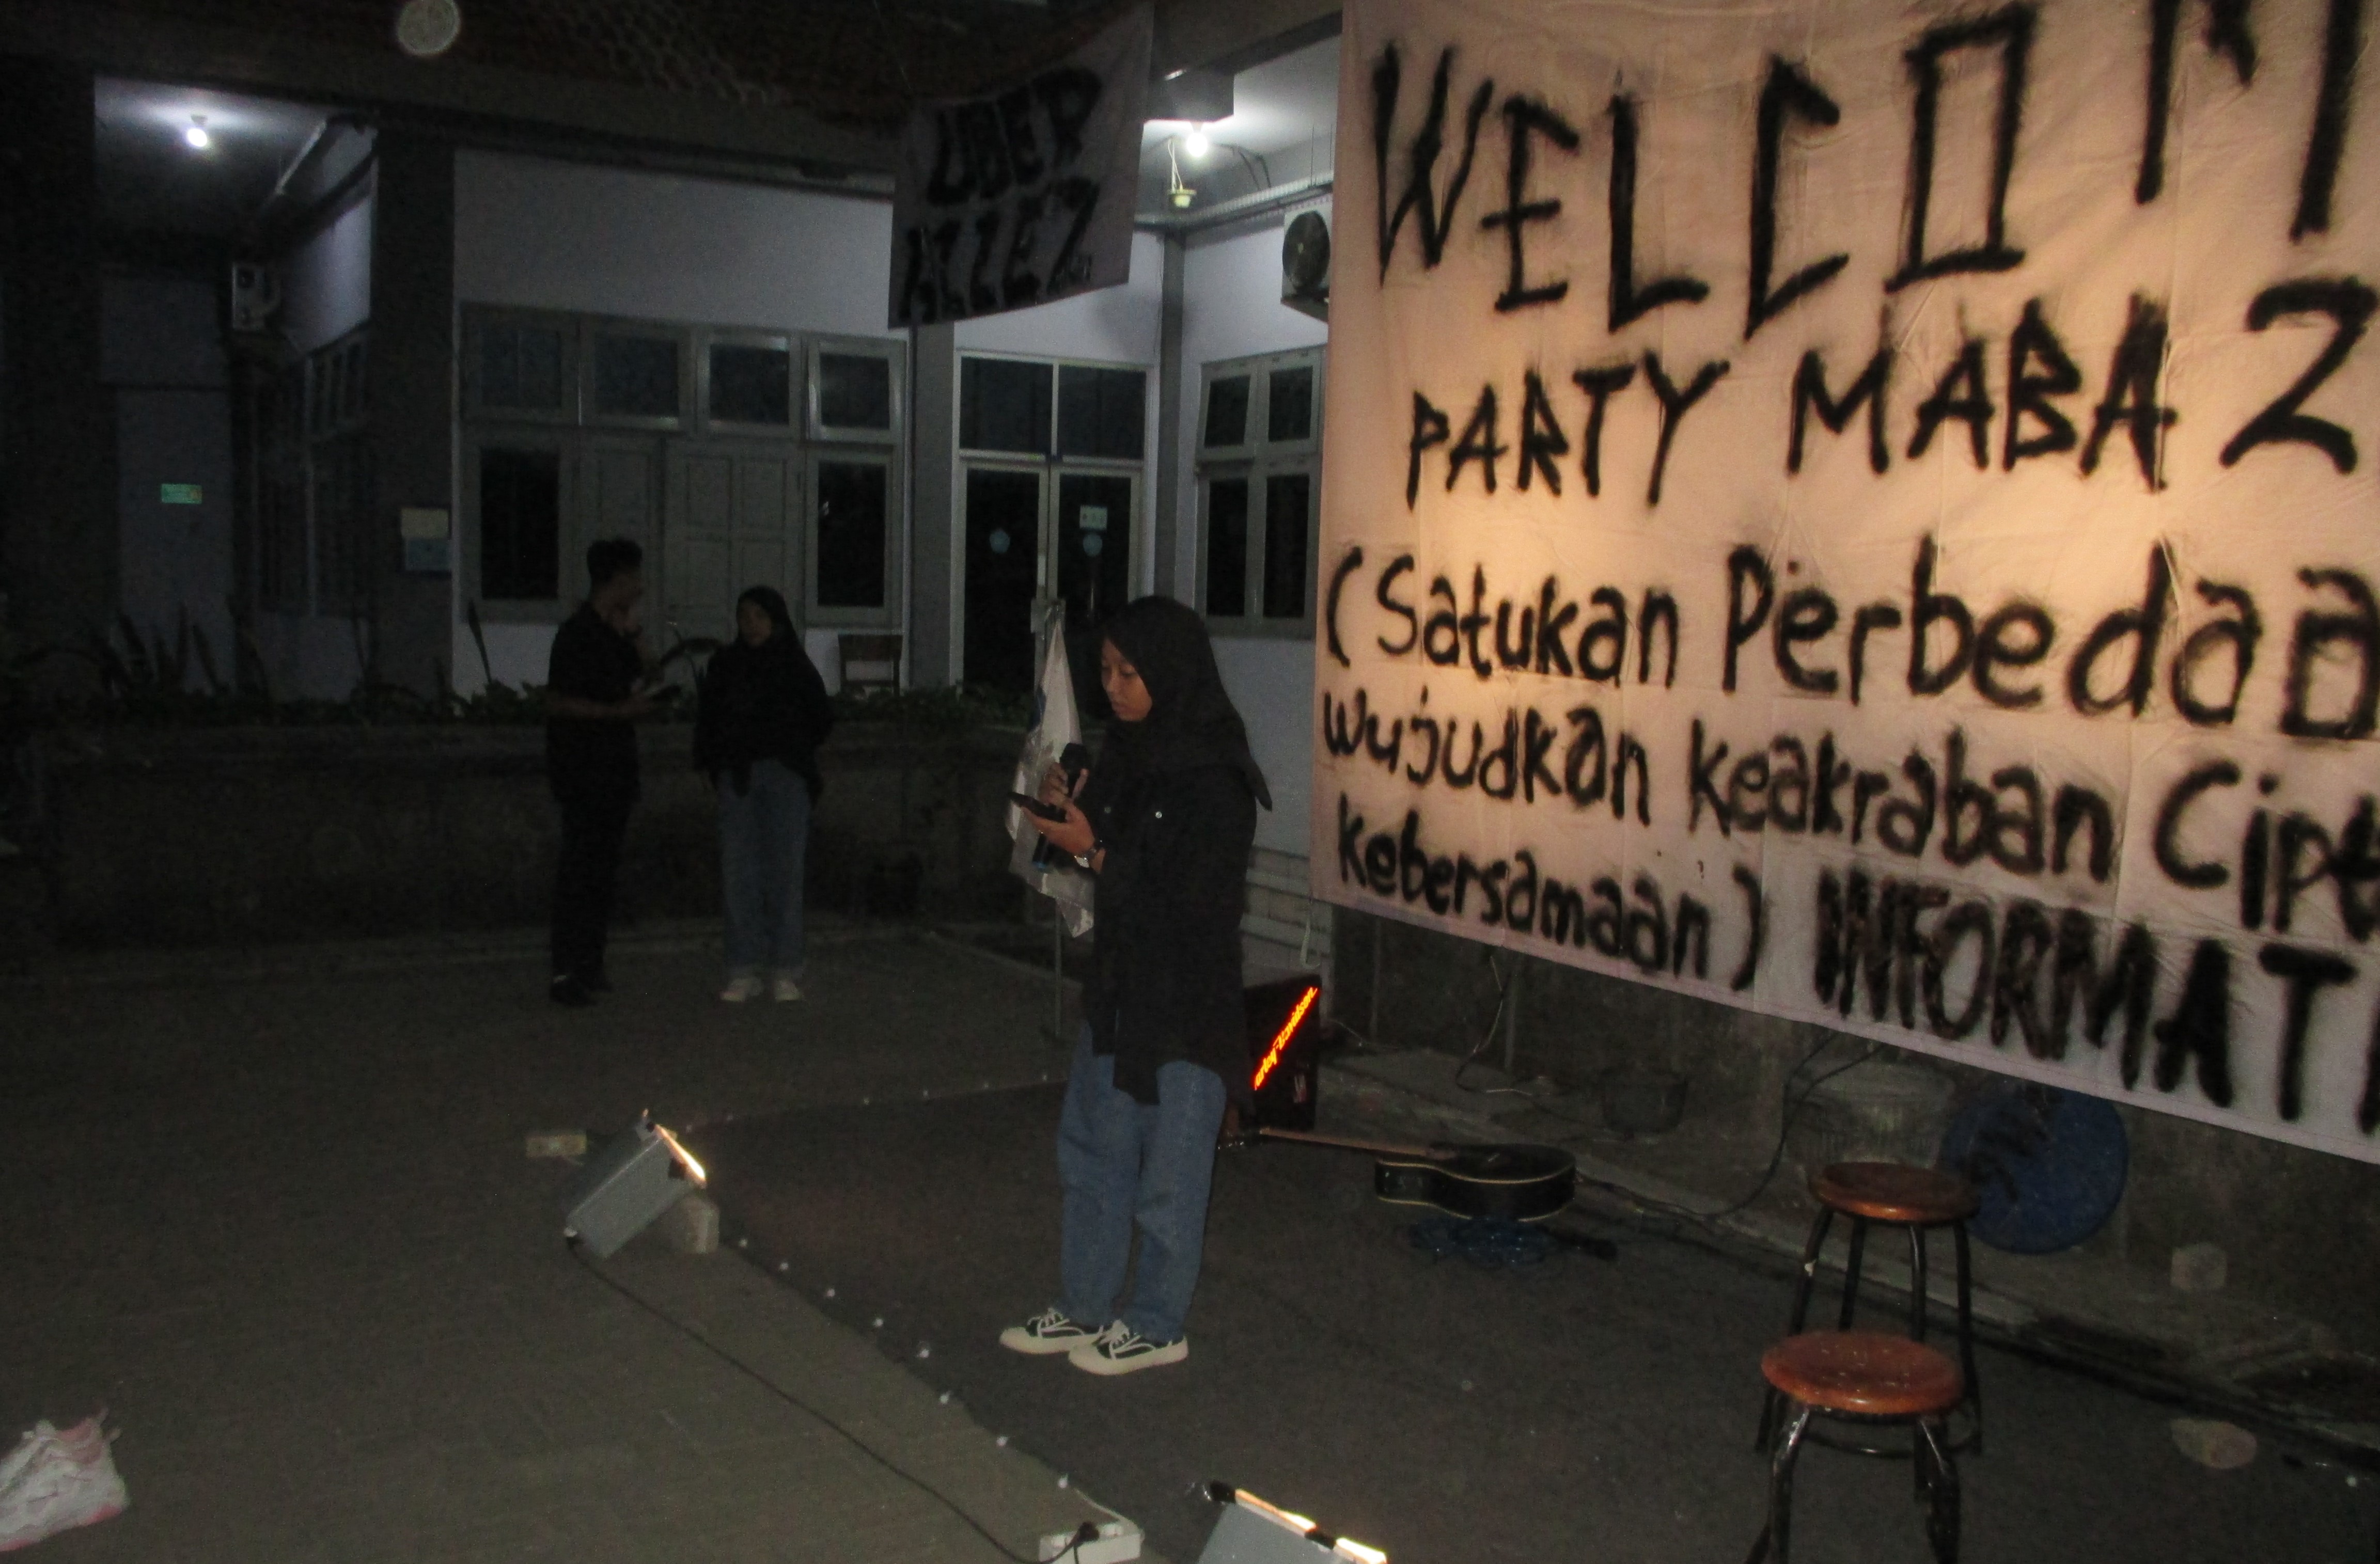 UBER
ALLEZ
WELCOM
PARTY MABA 2
(Satukan Perbedaan
wujudkan keakraban Cipt
kebersamaan) INFORMATI